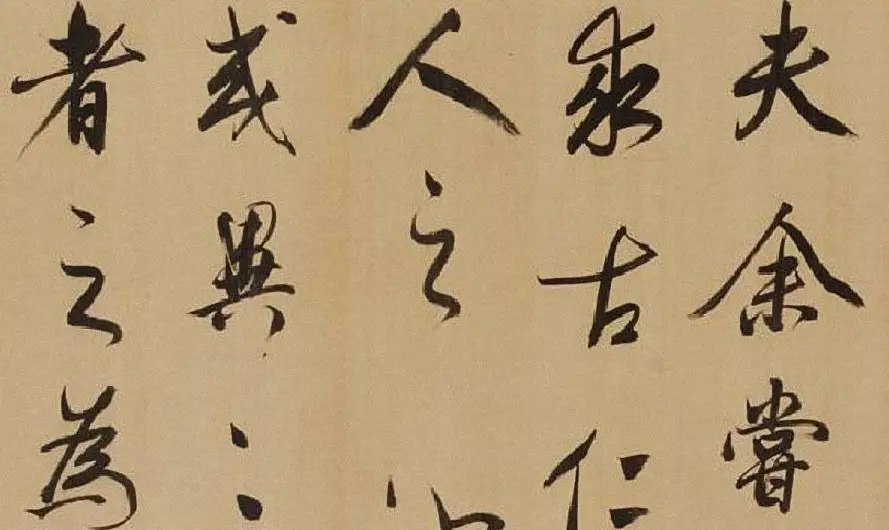 夫余嘗
求古仁
人之心
或異二
者之為